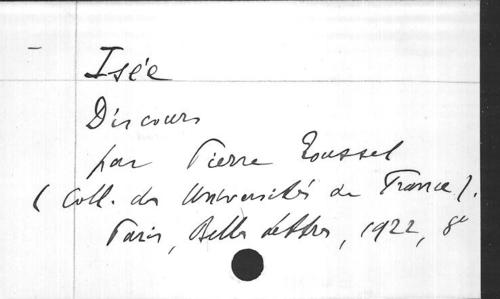 Isée
Discours
par Pierre Roussel
(Coll. des Universités de France).
Paris, Belles Lettres, 1922, 8°